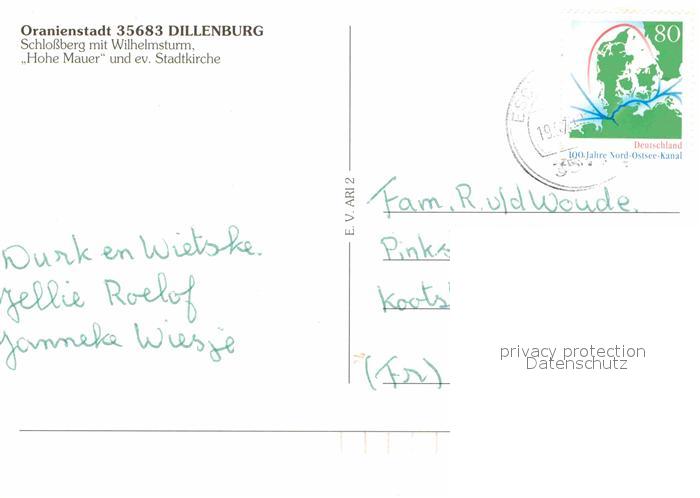 Oranienstadt 35683 DILLENBURG
Schloßberg mit Wilhelmsturm,
„Hohe Mauer“ und ev. Stadtkirche
80
Deutschland
100 Jahre Nord-Ostsee-Kanal
E. V. ARI 2
Fam. R. v/d Woude.
Pinks
Koots
(Fr)
Durk en Wietske.
Jellie Roelof
Janneke Wiesje
privacy protection
Datenschutz